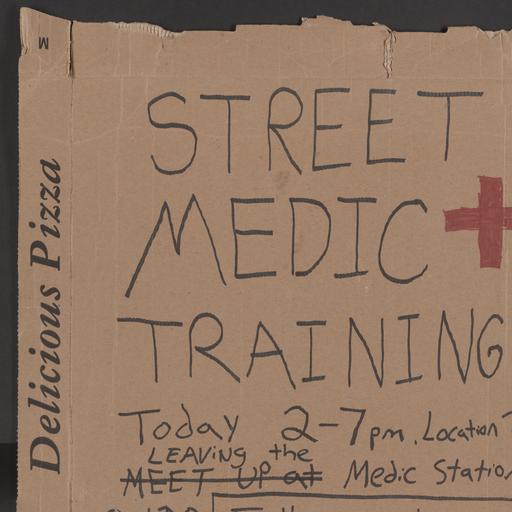 M
Delicious Pizza
STREET
MEDIC
TRAINING
Today 2-7pm. Location
LEAVING the
MEET UP at Medic Station